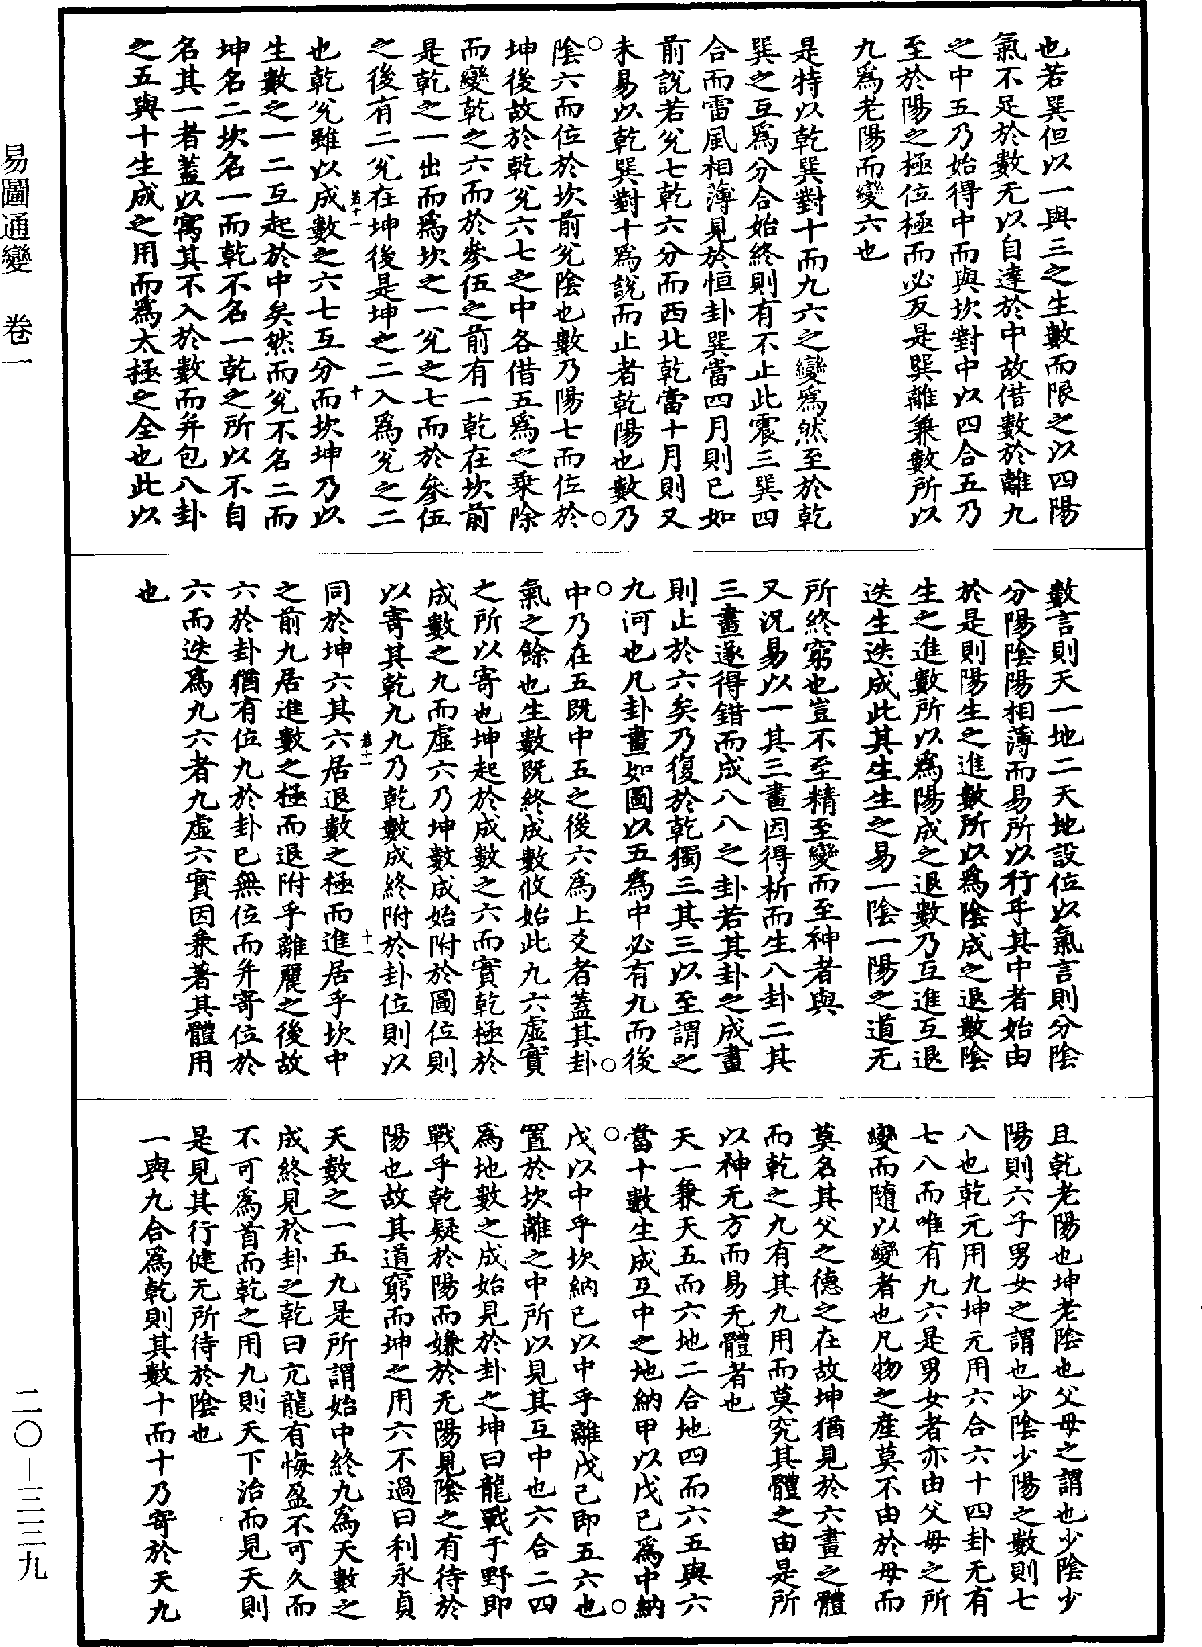 也若巽但以一與三之生數而限之以四陽
氣不足於數无以自達於中故借數於離九
之中五乃始得中而與坎對中以四合五乃
至於陽之極位極而必反是巽離兼數所以
九為老陽而變六也
是特以乾巽對十而九六之變為然至於乾
巽之互為分合始終則有不止此震三巽四
合而雷風相薄見於恒卦巽當四月則已如
前說若兊七乾六分而西北乾當十月則又
未易以乾巽對十為說而止者乾陽也數乃
陰六而位於坎前兊陰也數乃陽七而位於
坤後故於乾兊六七之中各借五為之乗除
而變乾之六而於參伍之前有一乾在坎前
是乾之一出而為坎之一兊之七而於參伍
之後有二兊在坤後是坤之二入為兊之二
也乾兊雖以成數之六七互分而坎坤乃以
生數之一二互起於中矣然而兊不名二而
坤名二坎名一而乾不名一乾之所以不自
名其一者蓋以寓其不入於數而并包八卦
之五與十生成之用而為太極之全也此以
數言則天一地二天地設位以氣言則分陰
分陽陰陽相薄而易所以行乎其中者始由
於是則陽生之進數所以為陰成之退數陰
生之進數所以為陽成之退數乃互進互退
迭生迭成此其生生之易一陰一陽之道无
所終窮也豈不至精至變而至神者與
又況易以一其三畫因得析而生八卦二其
三畫遂得錯而成八八之卦若其卦之成畫
則止於六矣乃復於乾獨三其三以至謂之
九何也凡卦畫如圖以五為中必有九而後
中乃在五既中五之後六為上爻者蓋其卦
氣之餘也生數既終成數攸始此九六虛實
之所以寄也坤起於成數之六而實乾極於
成數之九而虛六乃坤數成始附於圖位則
以寄其乾九九乃乾數成終附於卦位則以
同於坤六其六居退數之極而進居乎坎中
之前九居進數之極而退附乎離麗之後故
六於卦猶有位九於卦已無位而并寄位於
六而迭為九六者九虛六實因兼著其體用
也
且乾老陽也坤老陰也父母之謂也少陰少
陽則六子男女之謂也少陰少陽之數則七
八也乾元用九坤元用六合六十四卦无有
七八而唯有九六是男女者亦由父母之所
變而隨以變者也凡物之產莫不由於母而
莫名其父之德之在故坤猶見於六畫之體
而乾之九有其九用而莫究其體之由是所
以神无方而易无體者也
天一兼天五而六地二合地四而六五與六
當十數生成互中之地納甲以戊己為中納
戊以中乎坎納己以中乎離戊己即五六也
置於坎離之中所以見其互中也六合二四
為地數之成始見於卦之坤曰龍戰于野即
戰乎乾疑於陽而嫌於无陽見陰之有待於
陽也故其道窮而坤之用六不過曰利永貞
天數之一五九是所謂始中終九為天數之
成終見於卦之乾曰亢龍有悔盈不可久而
不可為首而乾之用九則天下治而見天則
是見其行健无所待於陰也
一與九合為乾則其數十而十乃寄於天九
易圖通變　卷一
二〇—三三九